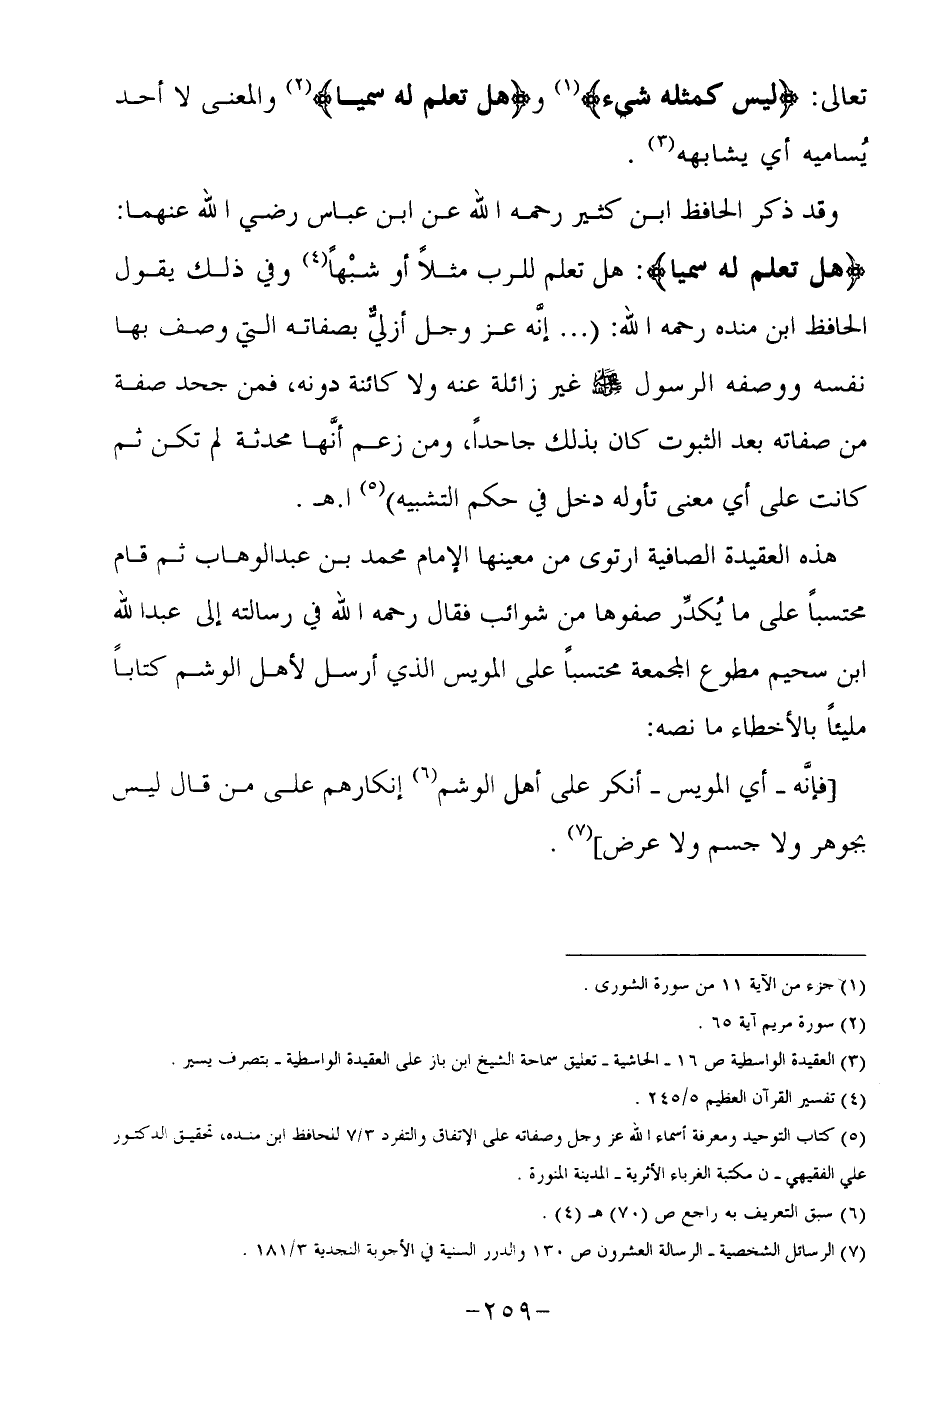 تعالى: ﴿ليس كمثله شيء﴾(١) و﴿هل تعلم له سميـا﴾(٢) والمعنى لا أحد
يُساميه أي يشابهه(٣) .
وقد ذكر الحافظ ابن كثير رحمه الله عن ابن عباس رضي الله عنهما:
﴿هل تعلم له سميا﴾: هل تعلم للرب مثلاً أو شبْهاً(٤) وفي ذلك يقول
الحافظ ابن منده رحمه الله: (... إنَّه عز وجل أزليٌّ بصفاته التي وصف بها
نفسه ووصفه الرسول ﷺ غير زائلة عنه ولا كائنة دونه، فمن جحد صفة
من صفاته بعد الثبوت كان بذلك جاحداً، ومن زعم أنَّها محدثة لم تكن ثم
كانت على أي معنى تأوله دخل في حكم التشبيه)(٥) ا.هـ .
هذه العقيدة الصافية ارتوى من معينها الإمام محمد بن عبدالوهاب ثم قام
محتسباً على ما يُكدِّر صفوها من شوائب فقال رحمه الله في رسالته إلى عبدالله
ابن سحيم مطوع المجمعة محتسباً على المويس الذي أرسل لأهل الوشم كتاباً
مليئاً بالأخطاء ما نصه:
[فإنَّه ـ أي المويس ـ أنكر على أهل الوشم(٦) إنكارهم على من قال ليس
بجوهر ولا جسم ولا عرض](٧) .
(١) جزء من الآية ١١ من سورة الشورى .
(٢) سورة مريم آية ٦٥ .
(٣) العقيدة الواسطية ص ١٦ ـ الحاشية ـ تعليق سماحة الشيخ ابن باز على العقيدة الواسطية ـ بتصرف يسير .
(٤) تفسير القرآن العظيم ٢٤٥/٥ .
(٥) كتاب التوحيد ومعرفة أسماء الله عز وجل وصفاته على الإتفاق والتفرد ٧/٣ للحافظ ابن منده، تحقيق الدكتور
علي الفقيهي ـ ن مكتبة الغرباء الأثرية ـ المدينة المنورة .
(٦) سبق التعريف به راجع ص (٧٠) هـ (٤) .
(٧) الرسائل الشخصية ـ الرسالة العشرون ص ١٣٠ والدرر السنية في الأجوبة النجدية ١٨١/٣ .
-٢٥٩-